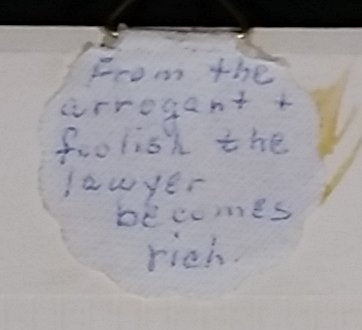 From the
arrogant +
foolish the
lawyer
becomes
rich.